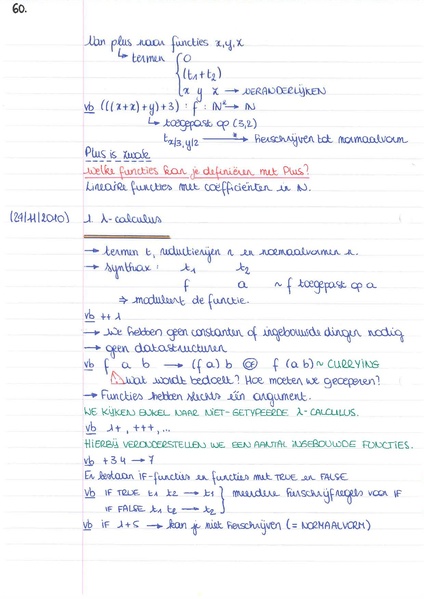 60.
Van plus naar functies x, y, z
↳ termen { 0
(t1 + t2)
x y z → VERANDERLIJKEN
vb (((x+x)+y)+3) : f : ℕ² → ℕ
↳ toegepast op (3,2)
t x/3, y/2 →* herschrijven tot normaalvorm
Plus is zwak
Welke functies kan je definiëren met Plus?
Lineaire functies met coëfficiënten in ℕ.
(24/11/2010) λ-calculus
→ termen t, reductierijen r en normaalvormen n.
→ synthax: t1 t2
f a ~ f toegepast op a
⇒ moduleert de functie.
vb ++1
→ We hebben geen constanten of ingebouwde dingen nodig
→ geen datastructuren
vb f a b → (f a) b OF f (a b) ~ CURRYING
⚠ wat wordt bedoelt? Hoe moeten we groeperen?
→ Functies hebben slechts één argument.
WE KIJKEN ENKEL NAAR NIET-GETYPEERDE λ-CALCULUS.
vb 1+, +++, ...
HIERBIJ VERONDERSTELLEN WE EEN AANTAL INGEBOUWDE FUNCTIES.
vb +34 → 7
Er bestaan IF-functies en functies met TRUE en FALSE
vb IF TRUE t1 t2 → t1 } meerdere herschrijfregels voor IF
IF FALSE t1 t2 → t2
vb IF 1+5 → kan je niet herschrijven (= NORMAALVORM)